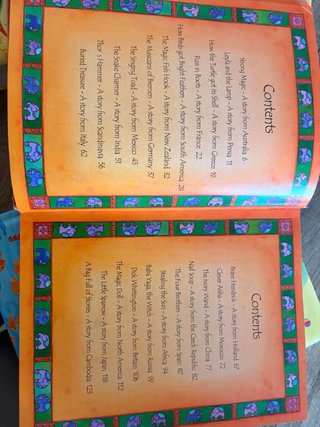 Contents
Strong Magic - A story from Australia 6
Leyla and the Lamp - A story from Persia 11
How the Turtle got its Shell - A story from Greece 19
Puss in Boots - A story from France 22
How Birds got Bright Feathers - A story from South America 28
The Magic Fish Hook - A story from New Zealand 32
The Musicians of Bremen - A story from Germany 37
The Singing Toad - A story from Mexico 45
The Snake Charmer - A story from India 51
Thor's Hammer - A story from Scandinavia 56
Buried Treasure - A story from Italy 62
Contents
Brave Hendrick - A story from Holland 67
Clever Aisha - A story from Morocco 72
The Ivory Wand - A story from China 77
Nail Soup - A story from the Czech Republic 82
The Four Brothers - A story from Spain 87
Stealing the Sun - A story from Africa 94
Baba Yaga, the Witch - A story from Russia 99
Dick Whittington - A story from Britain 106
The Magic Doll - A story from North America 112
The Little Sparrow - A story from Japan 118
A Bag Full of Stories - A story from Cambodia 123